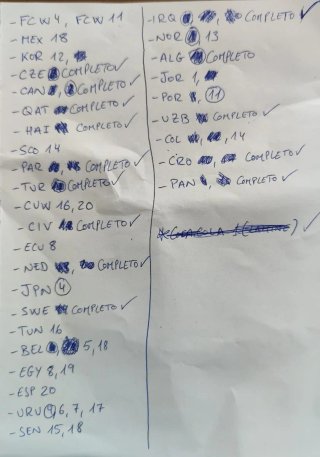 - FCW 4, FCW 11
- MEX 18
- KOR 12,
- CZE COMPLETO ✓
- CAN COMPLETO ✓
- QAT COMPLETO ✓
- HAI COMPLETO ✓
- SCO 14
- PAR COMPLETO ✓
- TUR COMPLETO ✓
- CUW 16, 20
- CIV COMPLETO ✓
- ECU 8
- NED COMPLETO ✓
- JPN 4
- SWE COMPLETO ✓
- TUN 16
- BEL 5, 18
- EGY 8, 19
- ESP 20
- URU 4, 6, 7, 17
- SEN 15, 18
- IRQ COMPLETO ✓
- NOR 13
- ALG COMPLETO ✓
- JOR 1,
- POR 11
- UZB COMPLETO ✓
- COL 14
- CRO COMPLETO ✓
- PAN COMPLETO ✓
* COCACOLA 1 ( ) ✓